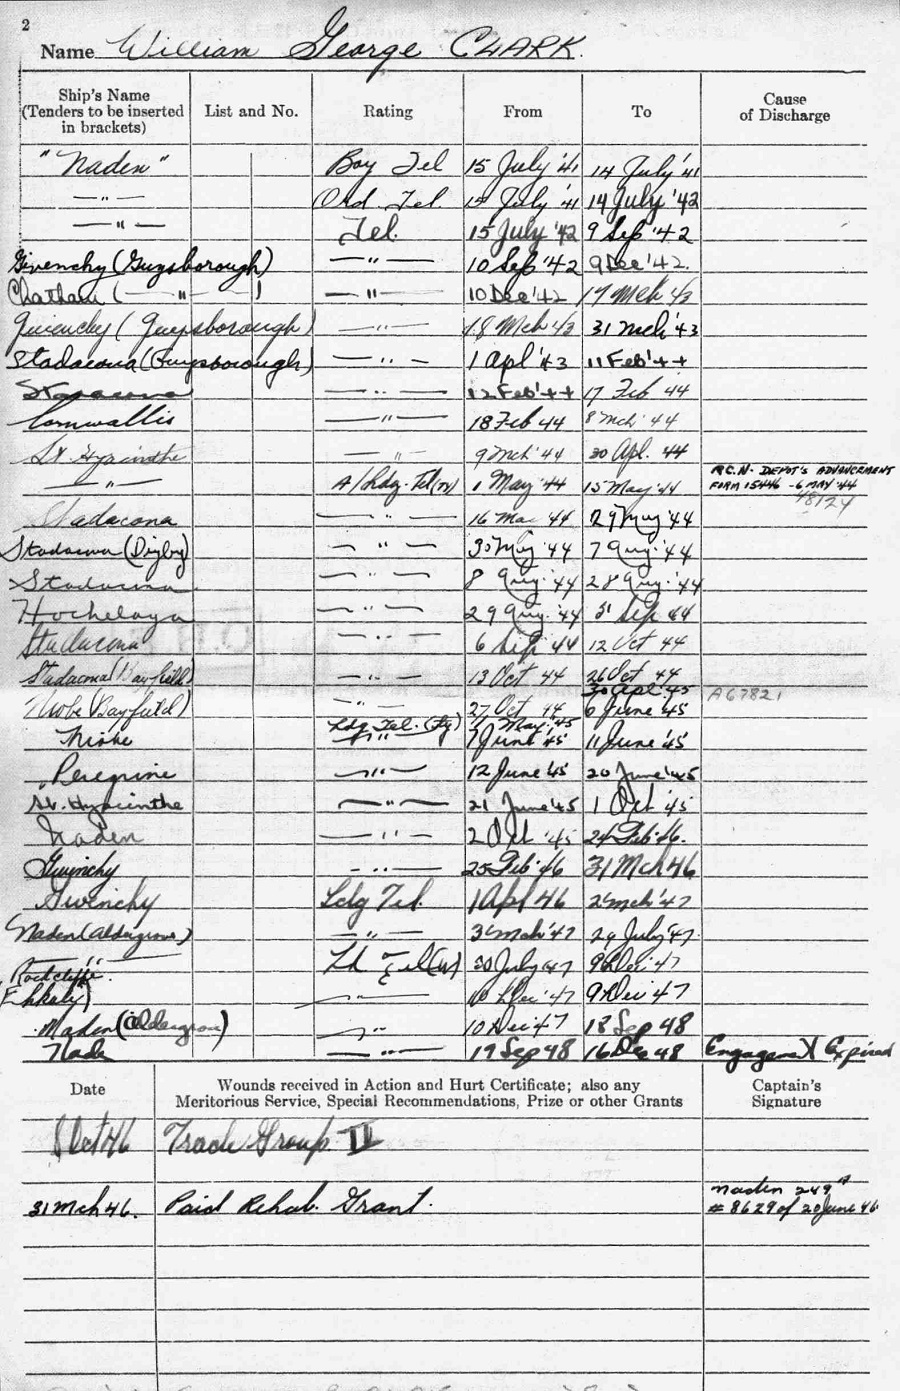 2
Name William George CLARK.
Ship's Name (Tenders to be inserted in brackets) List and No. Rating From To Cause of Discharge
"Naden" Boy Tel 15 July '41 14 July '41
—"— Ord. Tel. 15 July '41 14 July '42
—"— Tel. 15 July '42 9 Sep '42
Givenchy (Guysborough) —"— 10 Sep '42 9 Dec '42.
Chatham (—"—) —"— 10 Dec '42 17 Mch 43
Givenchy (Guysborough) —"— 18 Mch 43 31 Mch '43
Stadacona (Guysborough) —"— 1 Apl '43 11 Feb '44
Stadacona —"— 12 Feb '44 17 Feb 44
Cornwallis —"— 18 Feb 44 8 Mch '44
St. Hyacinthe —"— 9 Mch '44 30 Apl. 44
—"— A/Ldg. Tel 1 May '44 15 May '44 R.C.N. DEPOT'S ADVANCEMENT
FORM 15446 - 6 MAY '44
48124
Stadacona —"— 16 Ma 44 29 May '44
Stadacona (Digby) —"— 30 May '44 7 Aug. '44
Stadacona —"— 8 Aug. '44 28 Aug. '44
Hochelaga —"— 29 Aug. '44 5 Sep 44
Stadacona —"— 6 Sep '44 12 Oct 44
Stadacona (Bayfield) —"— 13 Oct 44 26 Oct 44
30 Apl. 45
Niobe (Bayfield) —"— 27 Oct 44 6 June '45 A67821
Ldg. Tel. 1 May '45
Niobe —"— 7 June '45 11 June '45
Peregrine —"— 12 June '45 20 June '45
St. Hyacinthe —"— 21 June '45 1 Oct '45
Naden —"— 2 Oct '45 24 Feb '46.
Givinchy —"— 25 Feb '46 31 Mch 46
Givenchy Ldg Tel. 1 Apl 46 2 Mch '47
Naden (Aldergrove) —"— 3 Mch '47 29 July '47
—"— Ld Tel 30 July 47 9 Dec '47
Rockcliffe.
—"— 10 Dec '47 9 Dec 47
Naden (Aldergrove) —"— 10 Dec 47 18 Sep 48
Nade —"— 19 Sep 48 16 Dec 48 Engagement Expired
Date Wounds received in Action and Hurt Certificate; also any Meritorious Service, Special Recommendations, Prize or other Grants Captain's Signature
1 Oct 46 Trade Group II
31 Mch 46. Paid Rehab. Grant. Naden 249A
# 8629 of 20 June 46